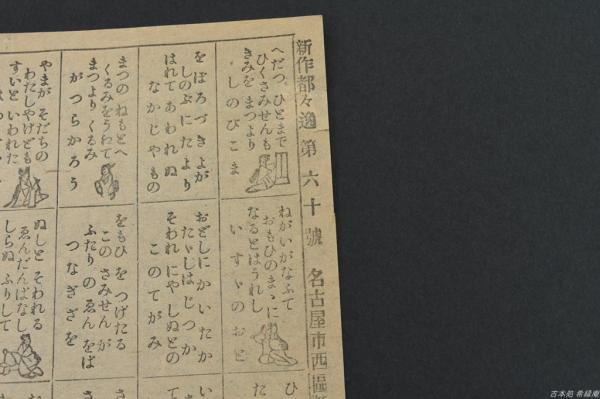 新作都々逸 第六十號 名古屋市西區
へだつ ひとまで
ひくさみせんも
きみを まつより
しのびこま
をぼろづきよが
しのぶに たより
はれて あわれぬ
なかじやもの
まつの ねもとへ
くるみをうわて
まつより くるみ
がつらかろう
やまが そだちの
わたしやけども
すいと いわれた
ねがいがなふて
おもひのまゝに
なるとはうれし
いすゞのおと
おどしに かいたか
たゞしは じつか
そわれ にやしぬとの
このてがみ
をもひを つげたる
この さみせんが
ふたりの ゑんをば
つなぎざを
ぬしと そわれる
ゑんだんばなし
しらぬ ふりして
古本処